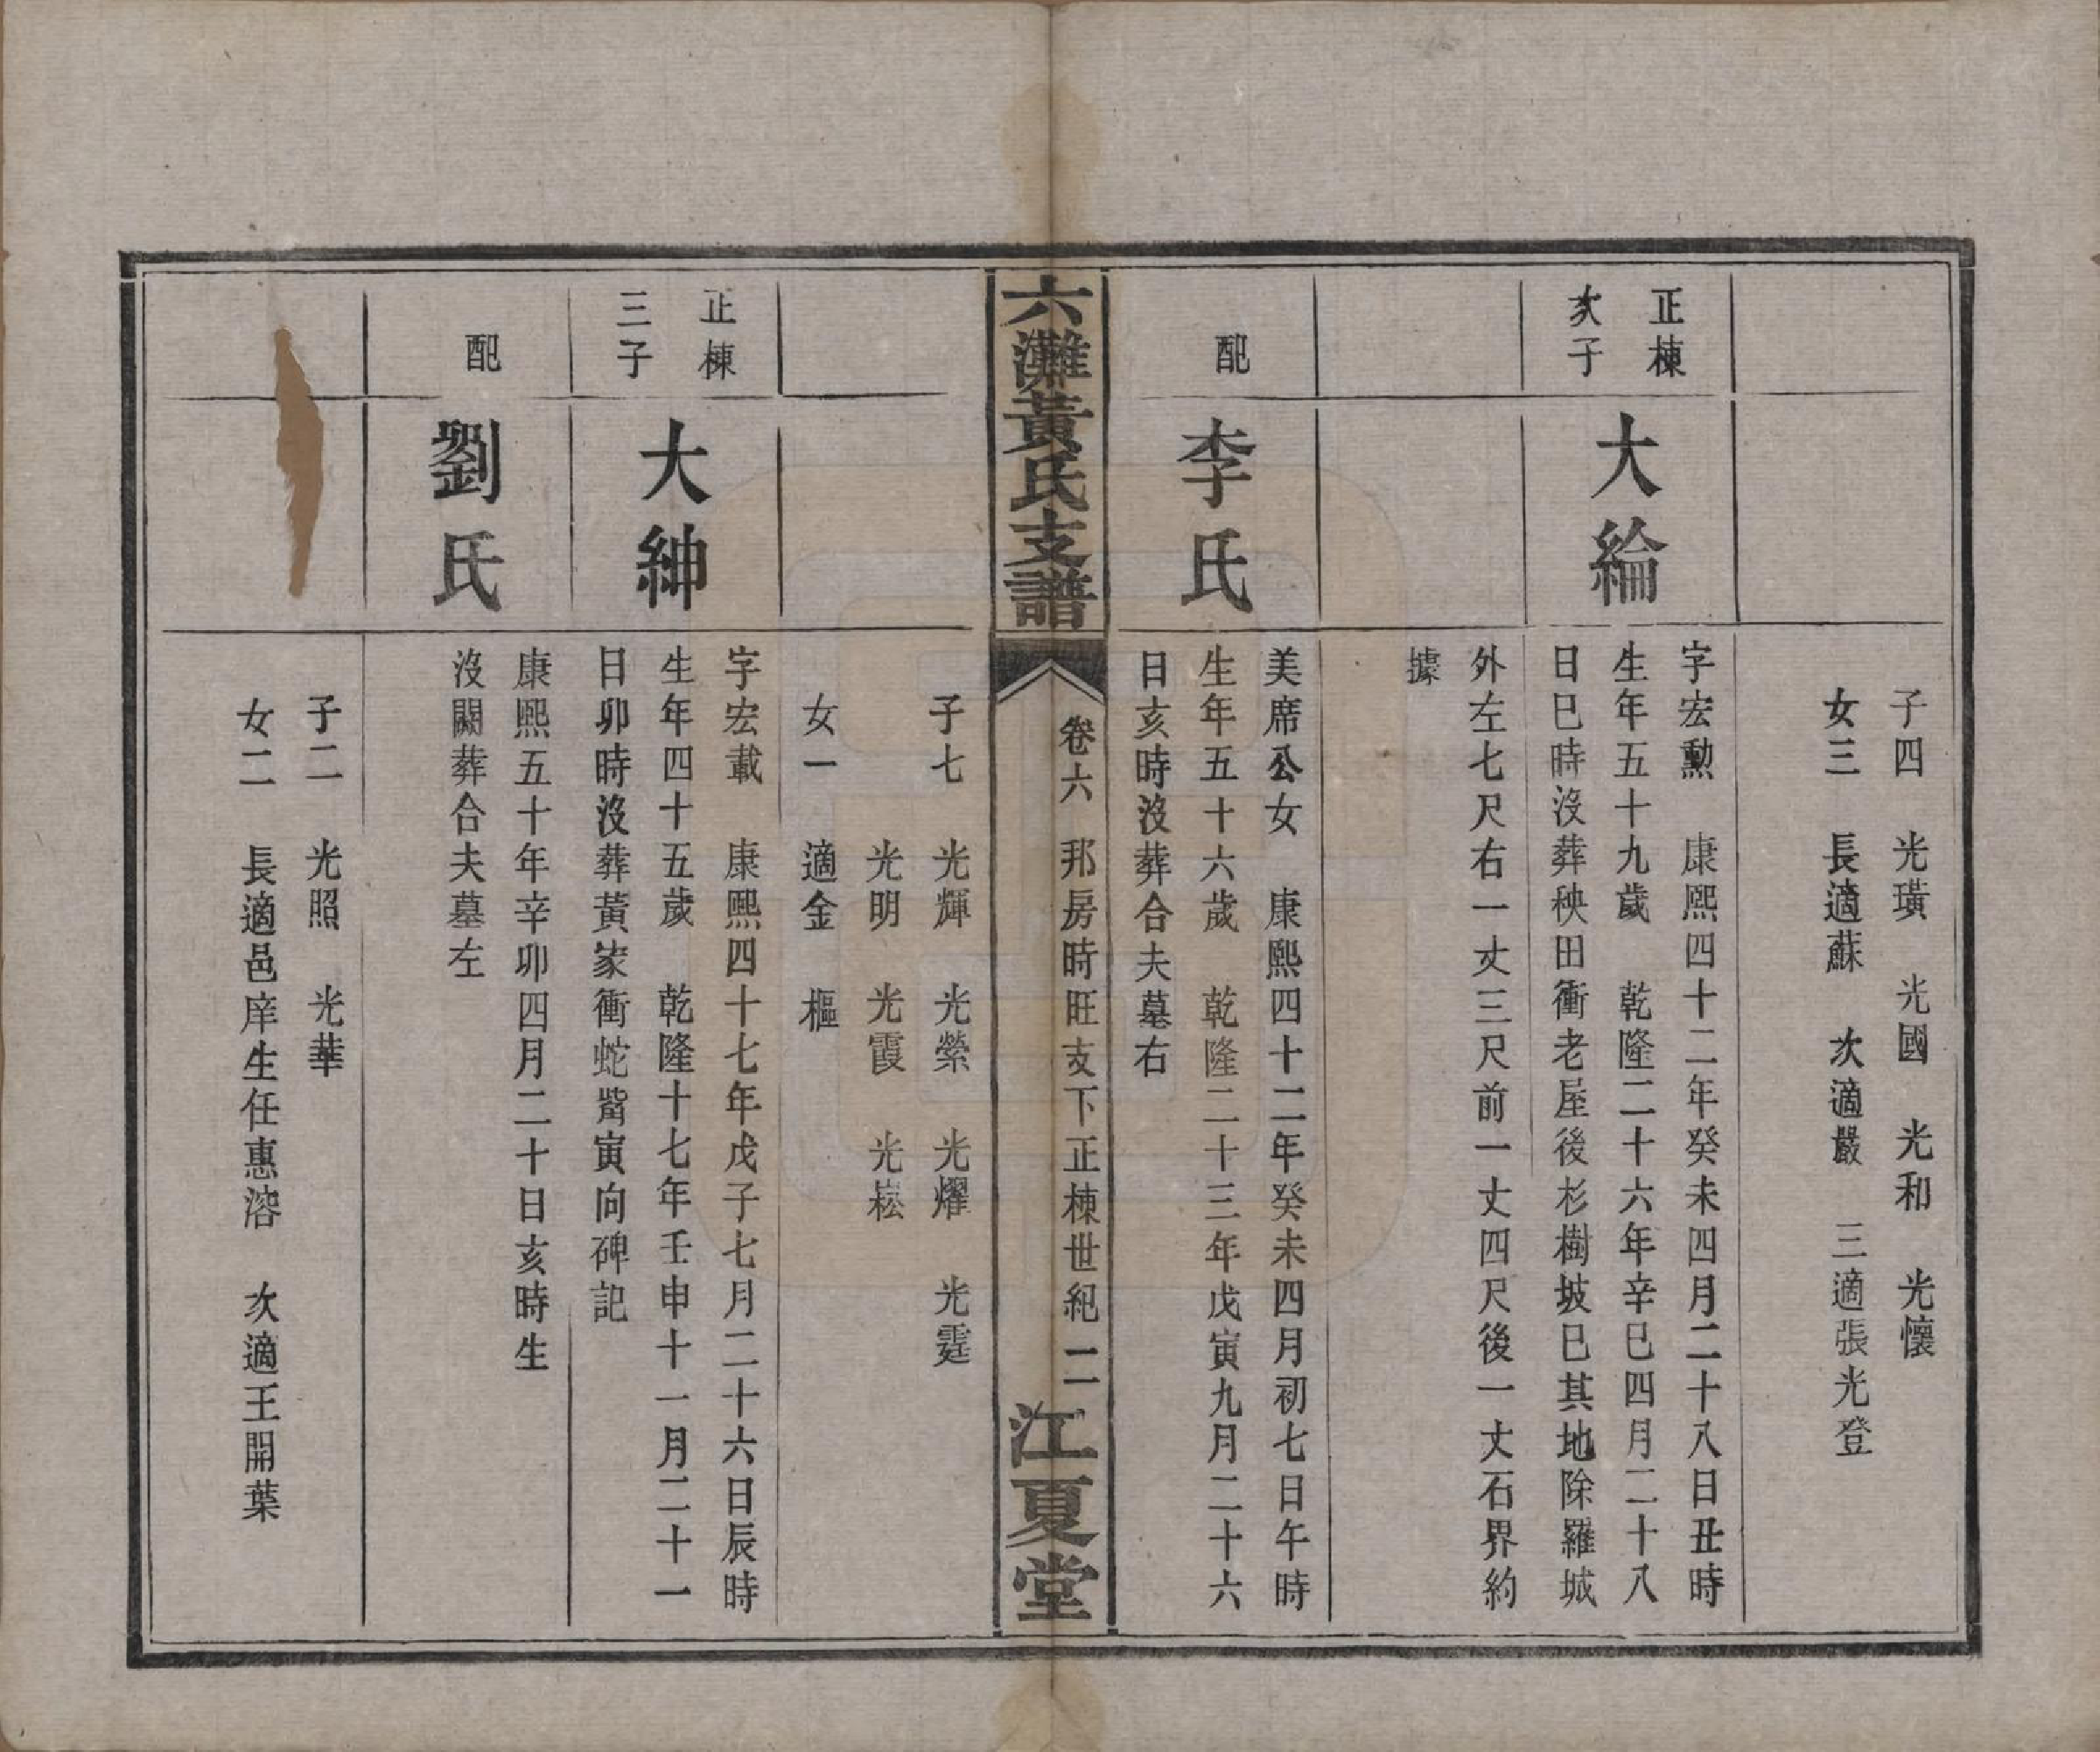 子四 光璜 光國 光和 光懷
女三 長適蘇 次適嚴 三適張光登
正棟
次子
大綸
字宏勳 康熙四十二年癸未四月二十八日丑時
生年五十九歲 乾隆二十六年辛巳四月二十八
日巳時沒葬秧田衝老屋後杉樹坡巳其地除羅城
外左七尺右一丈三尺前一丈四尺後一丈石界約
據
配
李氏
美席公女 康熙四十二年癸未四月初七日午時
生年五十六歲 乾隆二十三年戊寅九月二十六
日亥時沒葬合夫墓右
六灘黃氏支譜
卷六 邦房時旺支下正棟世紀 二
江夏堂
子七 光輝 光縈 光燿 光霆
光明 光霞 光崧
女一 適金 樞
正棟
三子
大紳
字宏載 康熙四十七年戊子七月二十六日辰時
生年四十五歲 乾隆十七年壬申十一月二十一
日卯時沒葬黃家衝蛇形寅向碑記
配
劉氏
康熙五十年辛卯四月二十日亥時生
沒闕葬合夫墓左
子二 光照 光華
女二 長適邑庠生任惠溶 次適王開葉